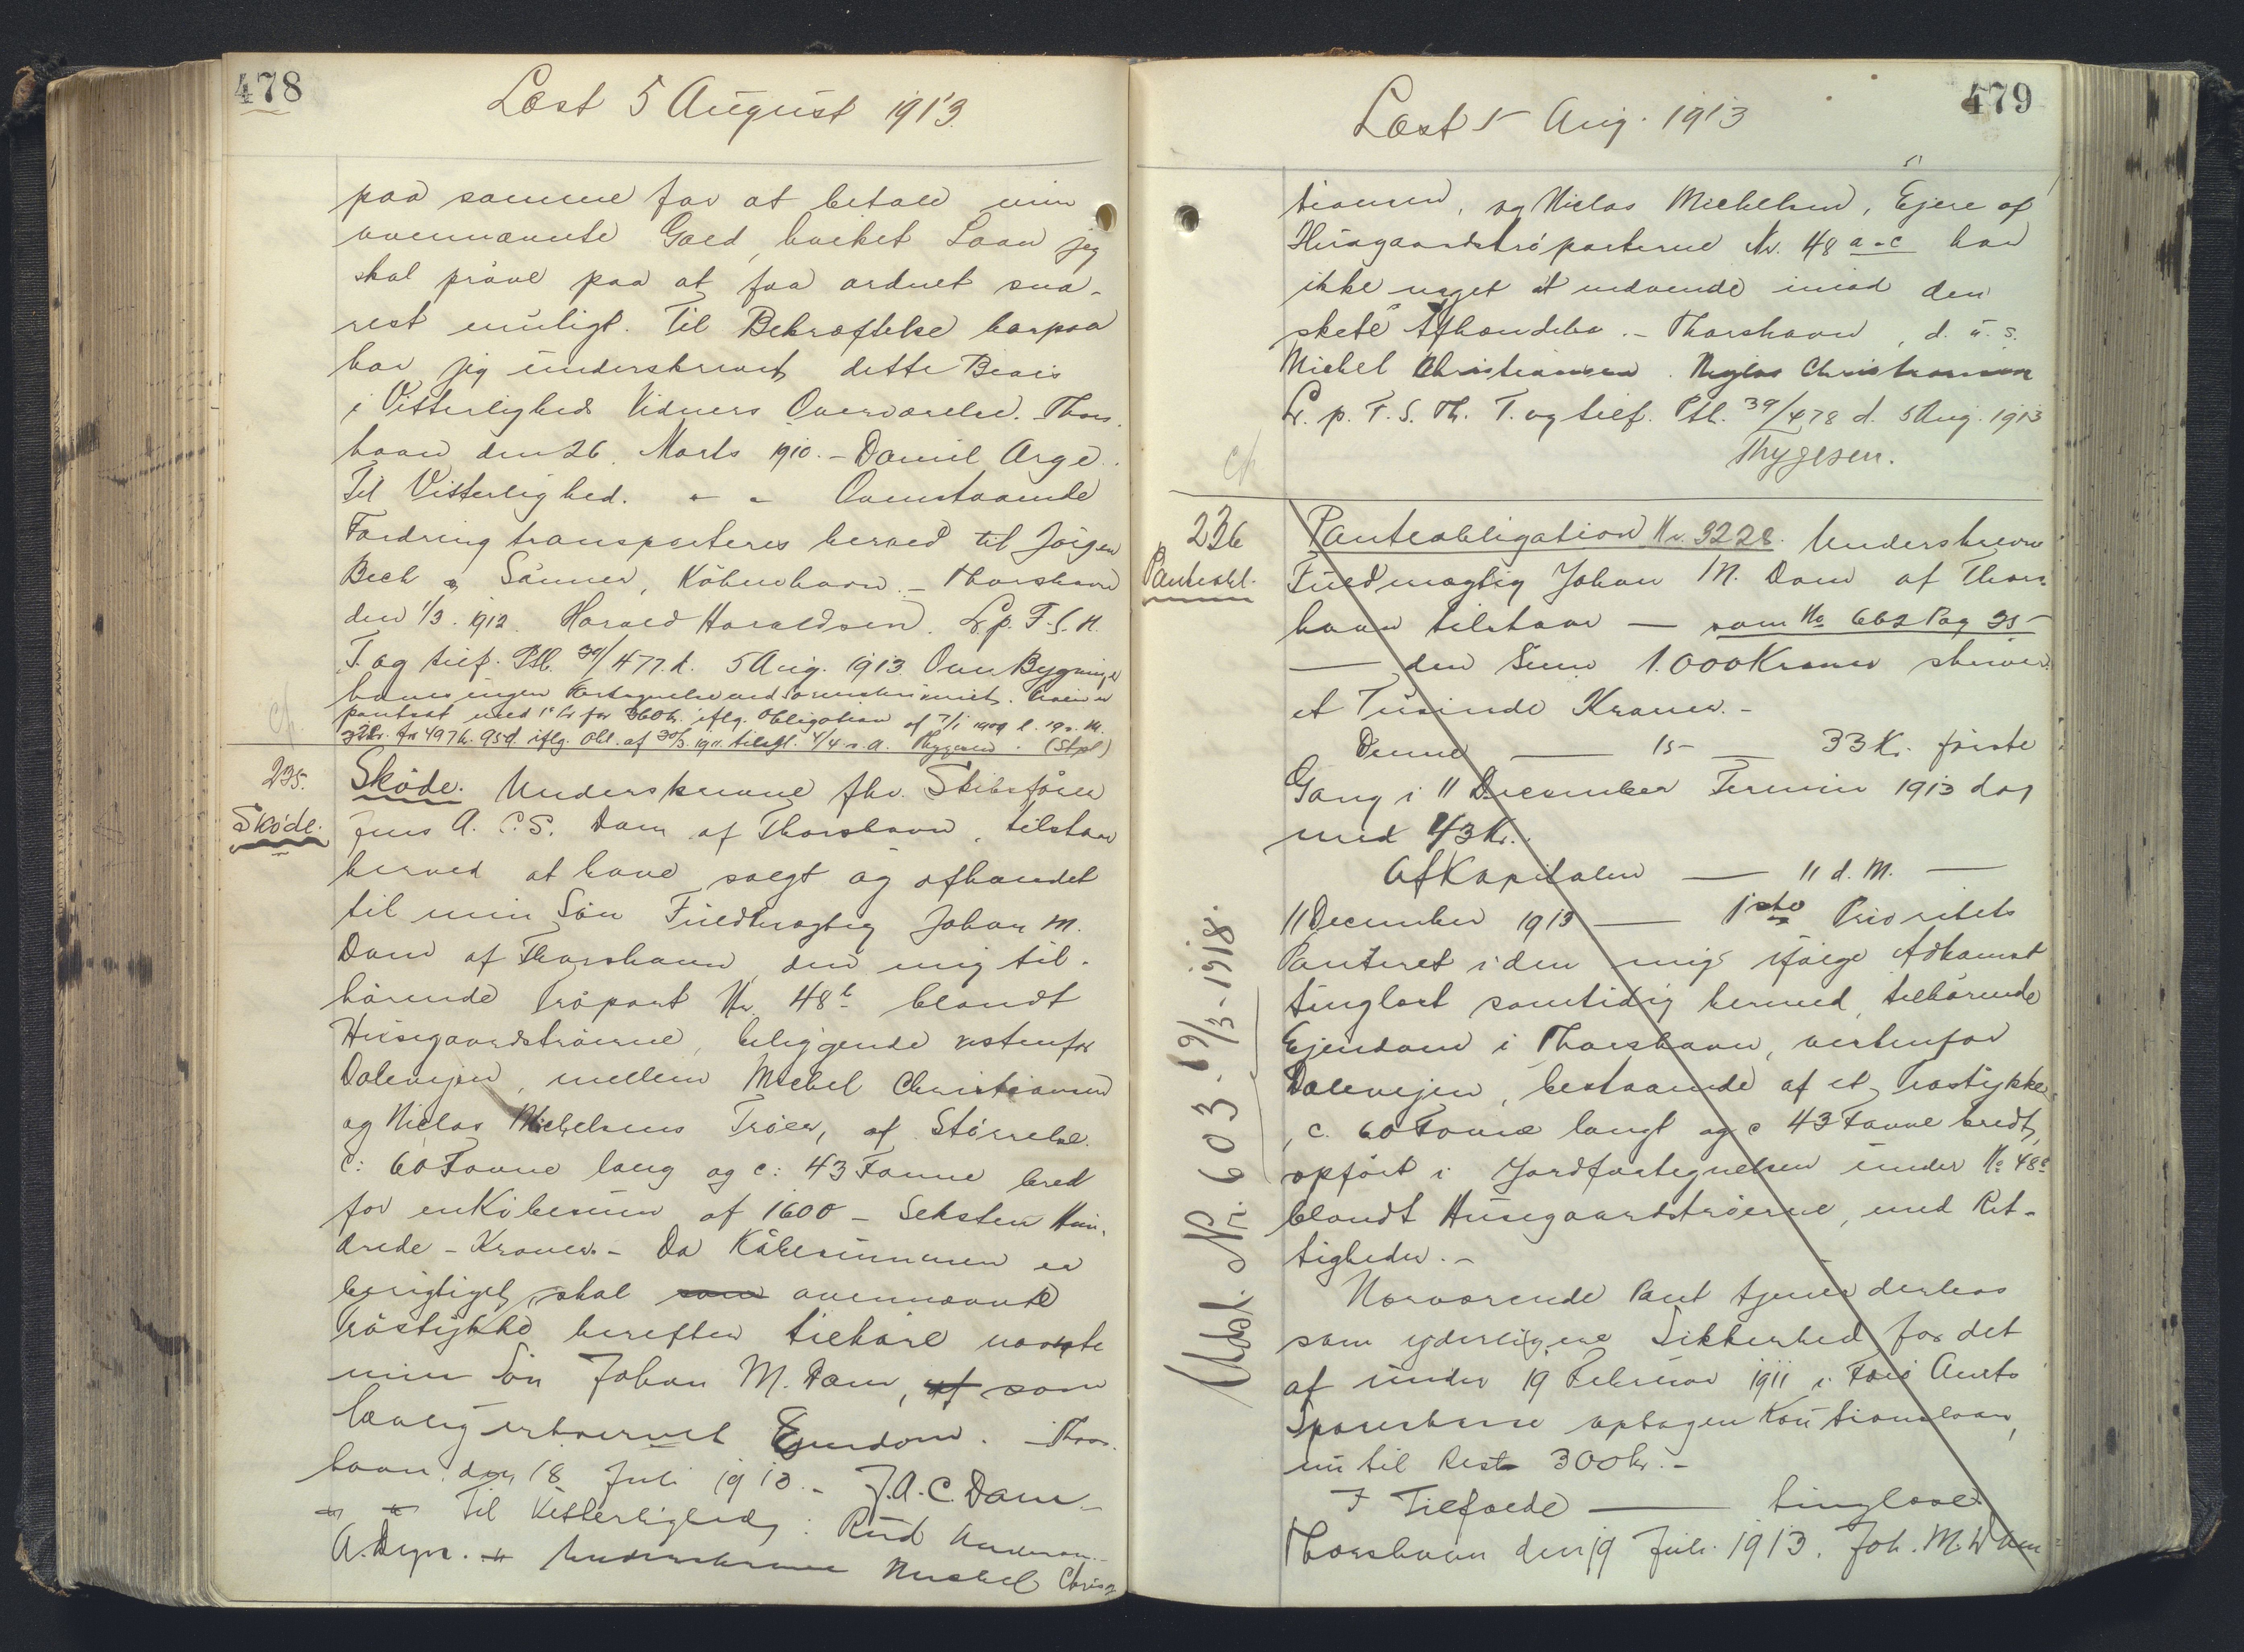 478
Læst 5 August 1913.
paa samme for at betale min
ovennævnte Gæld, hvilket Laan jeg
skal prøve paa at faa ordnet sna-
rest muligt. Til Bekræftelse herpaa
har jeg underskrevet dette Bevis
i Vitterligheds Vidners Overværelse. Thors-
havn den 26. Marts 1910. - Daniel Arge.
Til Vitterlighed. " " Ovenstaaende
Fordring transporteres herved til Jørgen
Bech & Sønner, København. - Thorshavn
den 1/3. 1912. Harald Haraldsen. L. p. F. S. R.
T. og tilf. Ptb. 39/477. d. 5 Aug. 1913. Over Bygninger
haves ingen
pantsat med 1' Pr for 360 Kr. iflg. Obligation af 7/1 1909 l. 19 s. M.
for 497 Kr. 95 Ø. iflg. Obl. af 30/3 1911. 4/4 s. A. Thygesen. (Stpl)
235.
Skøde.
Skøde. Underskrevne fhv. Skibsfører
Jens A. C. S. Dam af Thorshavn, tilstaar
herved at have solgt og afhændet
til min Søn Fuldmægtig Johan M.
Dam af Thorshavn, den mig til-
hørende Trøpart Nr. 48b blandt
Husegaardstrøerne, beliggende vestenfor
Dalevejen, mellem Michel Christiansen
og Niclas Michelsens Trøer, af Størrelse
c: 60 Favne lang og c: 43 Favne bred
for en Købesum af 1600 - Seksten Hun-
drede - Kroner. - Da Købesummen er
berigtiget, skal som ovennævnte
Trøstykke herefter tilhøre nævnte
min Søn Johan M. Dam, af som
lovlig erhvervet Ejendom. - Thors-
havn, den 18 Juli 1913. - J. A. C. Dam.
" " Til Vitterlighed: Rud Andersen.
A. Degn. " Underskrevne Michel Chris-
479
Læst 5 Aug. 1913
tiansen, og Niclas Michelsen, Ejere af
Husagaardstrøparterne Nr. 48 a-c har
ikke noget at indvende imod den
skete Afhændelse. - Thorshavn, d. u. s.
Michel Christiansen. Niclas Christiansen
L. p. F. S. Th. T. og tilf. Ptb. 39/478 d. 5 Aug. 1913
Thygesen.
236
Panteobl.
Panteobligation Nr. 3228. Underskrevne
Fuldmægtig Johan M. Dam af Thors-
havn tilstaar — som No 662 Pag 35
— den Sum 1.000 Kroner skriver
et Tusinde Kroner. -
Denne — 15 — 33 Kr. første
Gang i 11 December Termin 1913 dog
med 43 Kr.
Af Kapitalen — 11 d. M. —
11 December 1913 — 1ste Prioritets
Panteret i den mig ifølge Adkomst
tinglæst samtidig hermed, tilhørende
Ejendom i Thorshavn, vestenfor
Dalevejen, bestaaende af et Trøstykke
, c. 60 Favne langt og c 43 Favne bredt,
opført i Jordfortegnelsen under No 48b
blandt Husegaardstrøerne, med Ret-
tigheder. -
Nærværende Pant tjener derhos
som yderligere Sikkerhed for det
af under 19 Februar 1911 i Færø Amts
Sparekasse optagen Kautionslaan,
nu til Rest 300 Kr. -
I Tilfælde — tinglæses.
Thorshavn den 19 Juli 1913. Joh. M. Dam
Udsl. Nr. 603 - 19/3 - 1918.